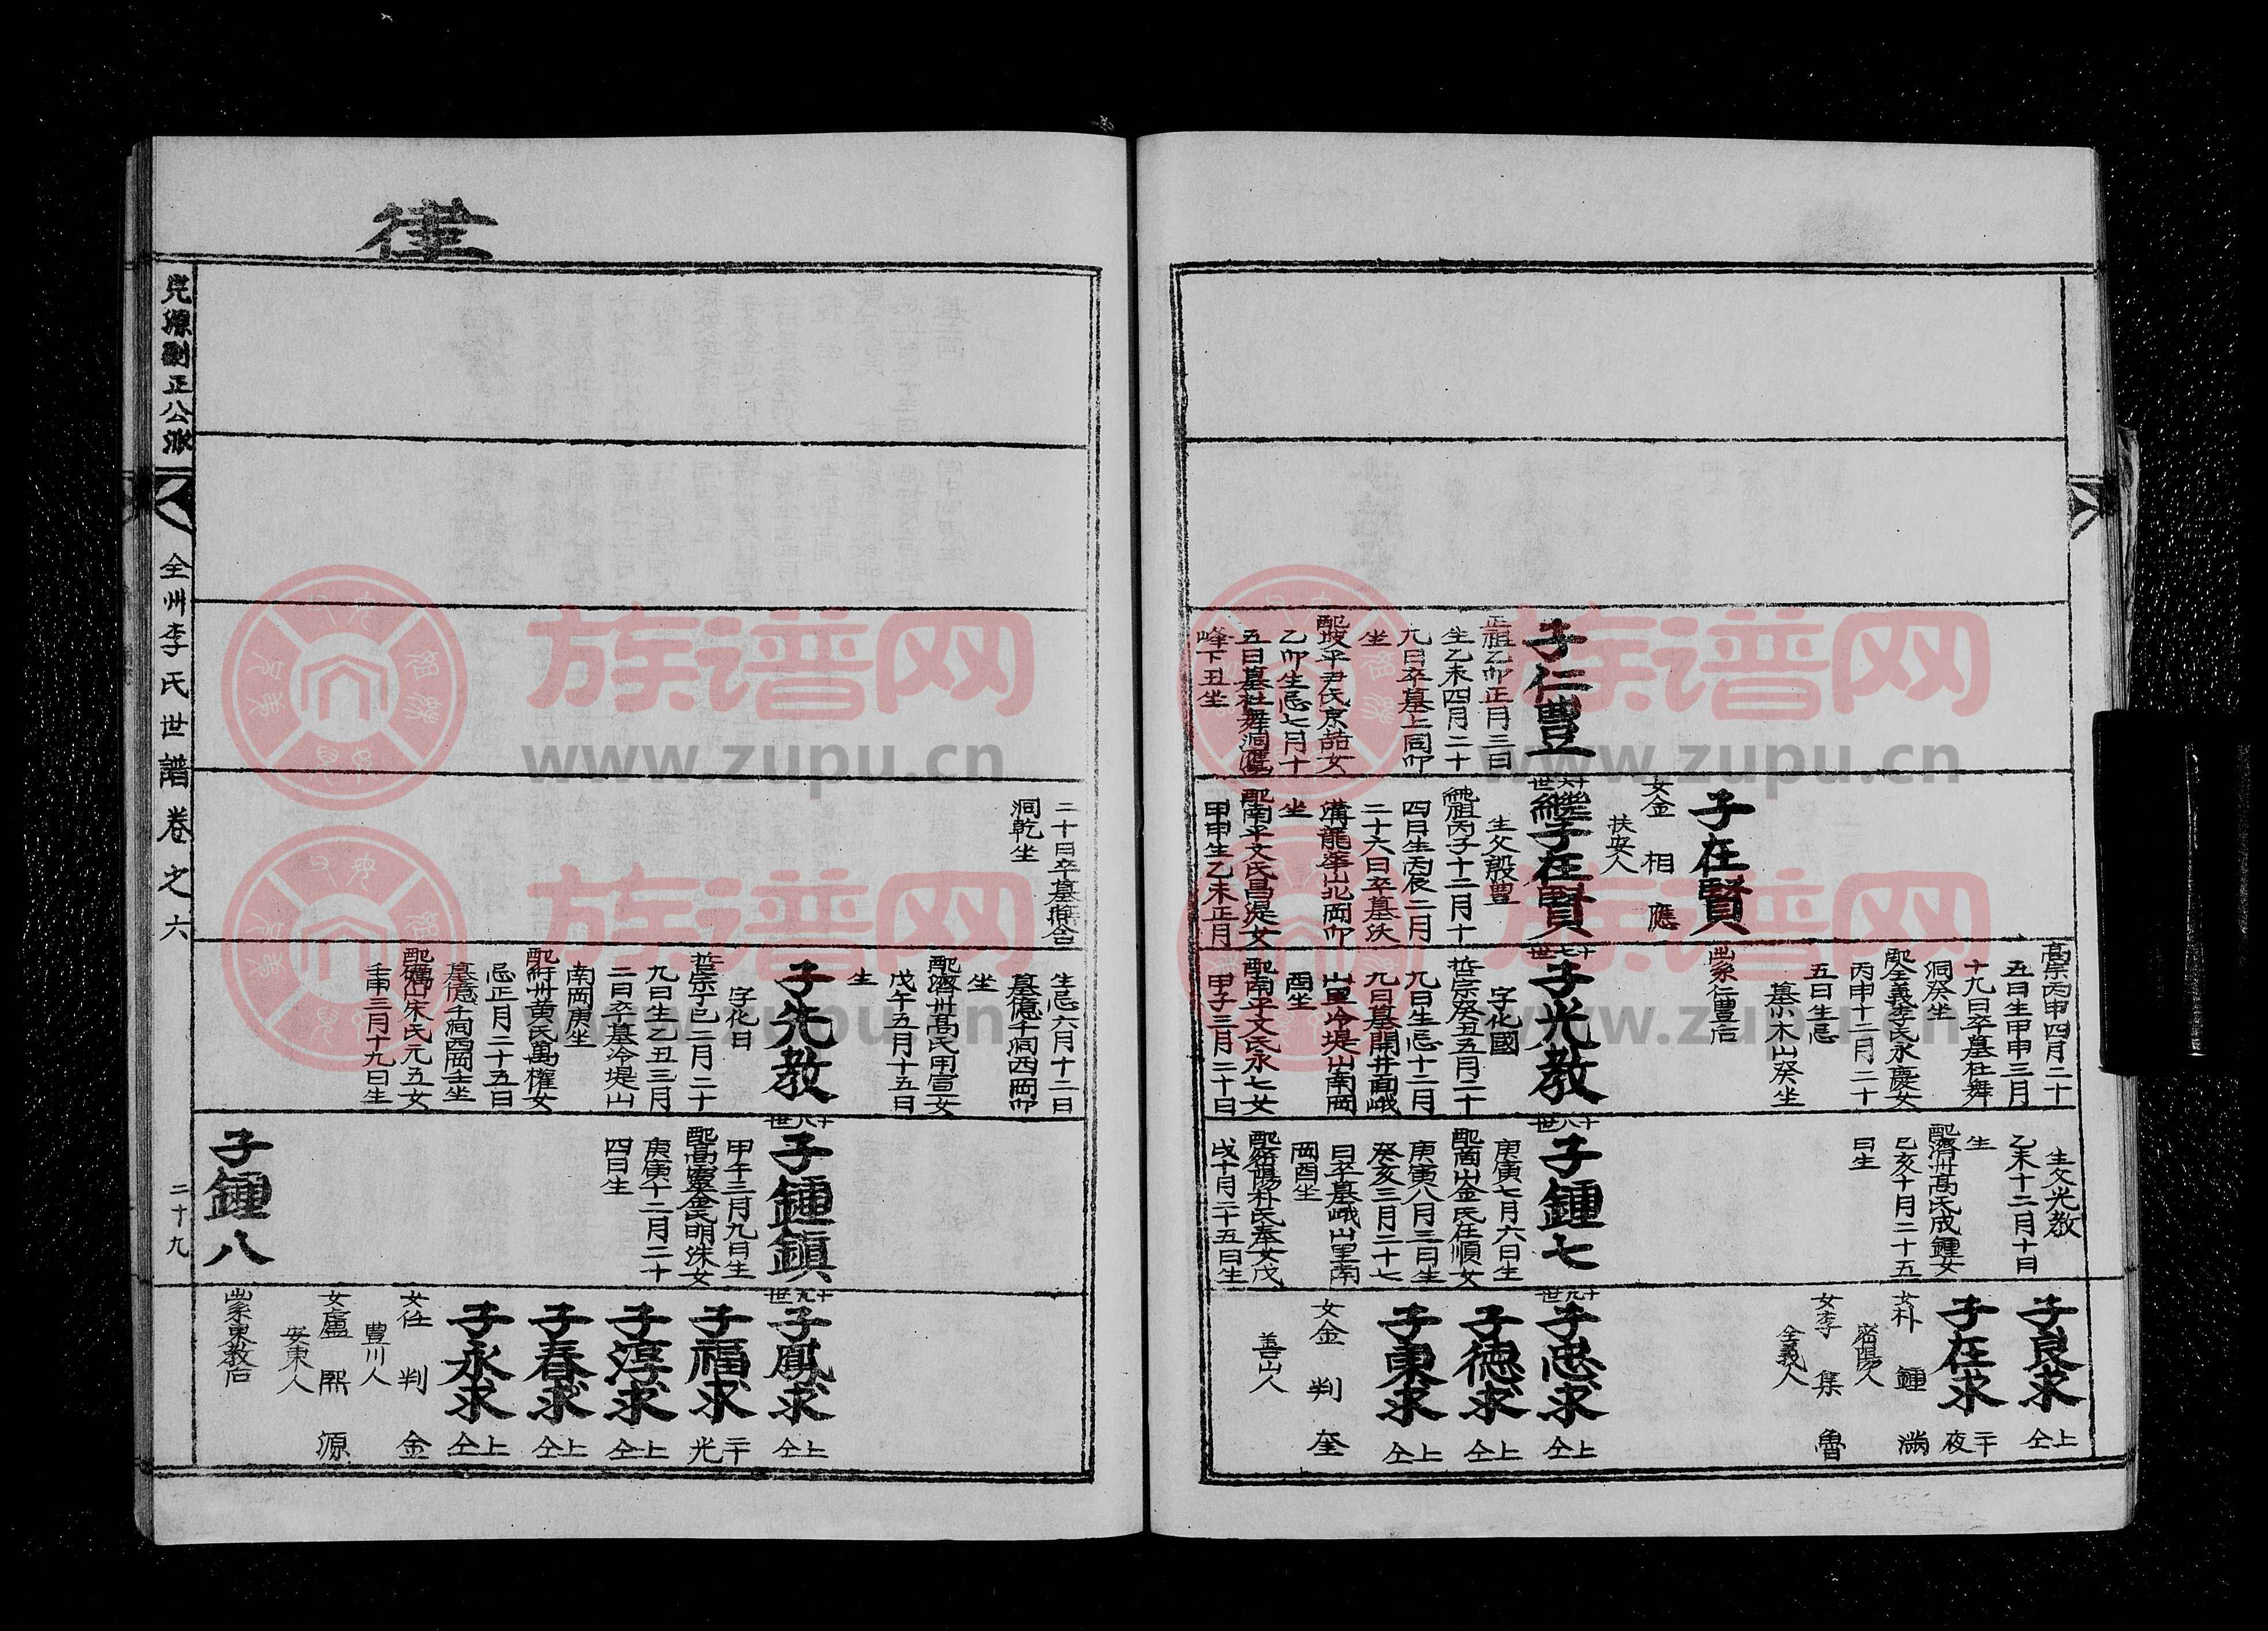 子仁豐
正祖乙卯正月三日
生乙未四月二十
九日卒墓上同卯
坐
配坡平尹氏京喆女
乙卯生忌七月十
五日墓杜舞洞鷹
峰下丑坐
子在賢
女金相應
扶安人
十六世
繼子在賢
生父殷豊
純祖丙子十二月十
四日生丙辰二月
二十六日卒墓泆
溝龍華山北岡卯
坐
配南平文氏昌湜女
甲申生乙未正月
高宗丙申四月二十
五日生甲申三月
十九日卒墓杜舞
洞癸坐
配全義李氏永慶女
丙申十二月二十
五日生忌
墓木山癸坐
出系仁豊后
十七世
子光教
字化國
哲宗癸丑五月二十
九日生忌十二月
九日墓開井面峨
山里冷堤山南岡
酉坐
配南平文氏永七女
甲子三月二十日
生父光教
乙未十二月十日
生
配濟州高氏成鍾女
己亥十月二十五
日生
十八世
子鍾七
庚寅七月六日生
配商山金氏在順女
庚寅八月三日生
癸亥三月二十七
日卒墓峨山里南
岡酉坐
配密陽朴氏奉女戊
戌十月二十五日生
子良求
上仝
子在求
二十夜
女朴鍾満
密陽人
女李集魯
全義人
十九世
子忠求
上仝
子德求
上仝
子東求
上仝
女金判奎
善山人
二十日卒墓兆合
洞乾坐
生忌六月十二日
墓億千洞西岡卯
坐
配濟州高氏用宣女
戊午五月十五日
生
子先教
字化日
哲宗丁巳二月二十
九日生乙丑三月
二日卒墓冷堤山
南岡庚坐
配紆州黃氏萬權女
忌正月二十五日
墓億千洞西岡壬坐
配礪山宋氏元五女
壬申三月十九日生
十八世
子鍾鎭
甲午三月九日生
配高靈金氏明洙女
庚寅十二月二十
四日生
子鍾八
十九世
子鳳求
上仝
子福求
二十光
子淳求
上仝
子春求
上仝
子永求
上仝
女任判金
豊川人
女盧熙源
安東人
出系東教后
往
完源副正公派
全州李氏世譜卷之六
二十九
族谱网
www.zupu.cn
族谱网
www.zupu.cn
族谱网
www.zupu.cn
族谱网
www.zupu.cn